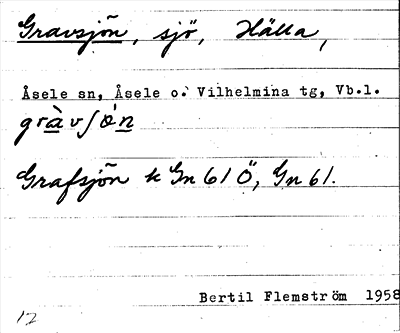 Gravsjön, sjö, Hälla,
Åsele sn, Åsele o. Vilhelmina tg, Vb.l.
gràvʃö́n
Grafsjön k Gn 61 Ö, Gn 61.
Bertil Flemström 1958
12